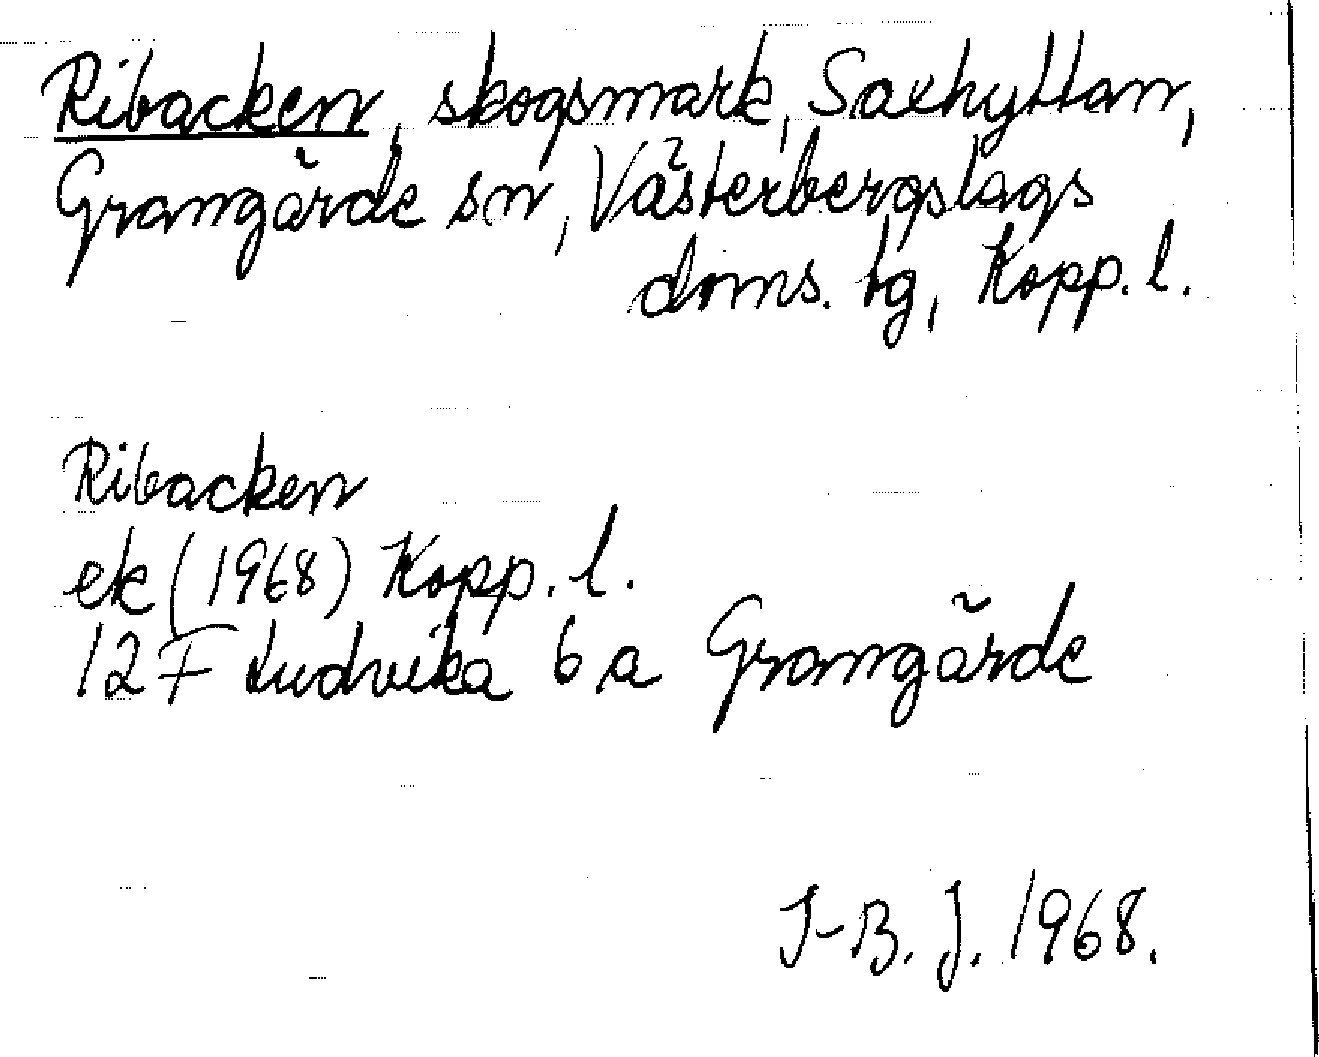 Ribacken, skogsmark, Saxhyttan,
Grangärde sn, Västerbergslags
doms. tg, Kopp. l.
Ribacken
ek (1968) Kopp. l.
12 F Ludvika 6 a Grangärde
I-B. J. 1968.